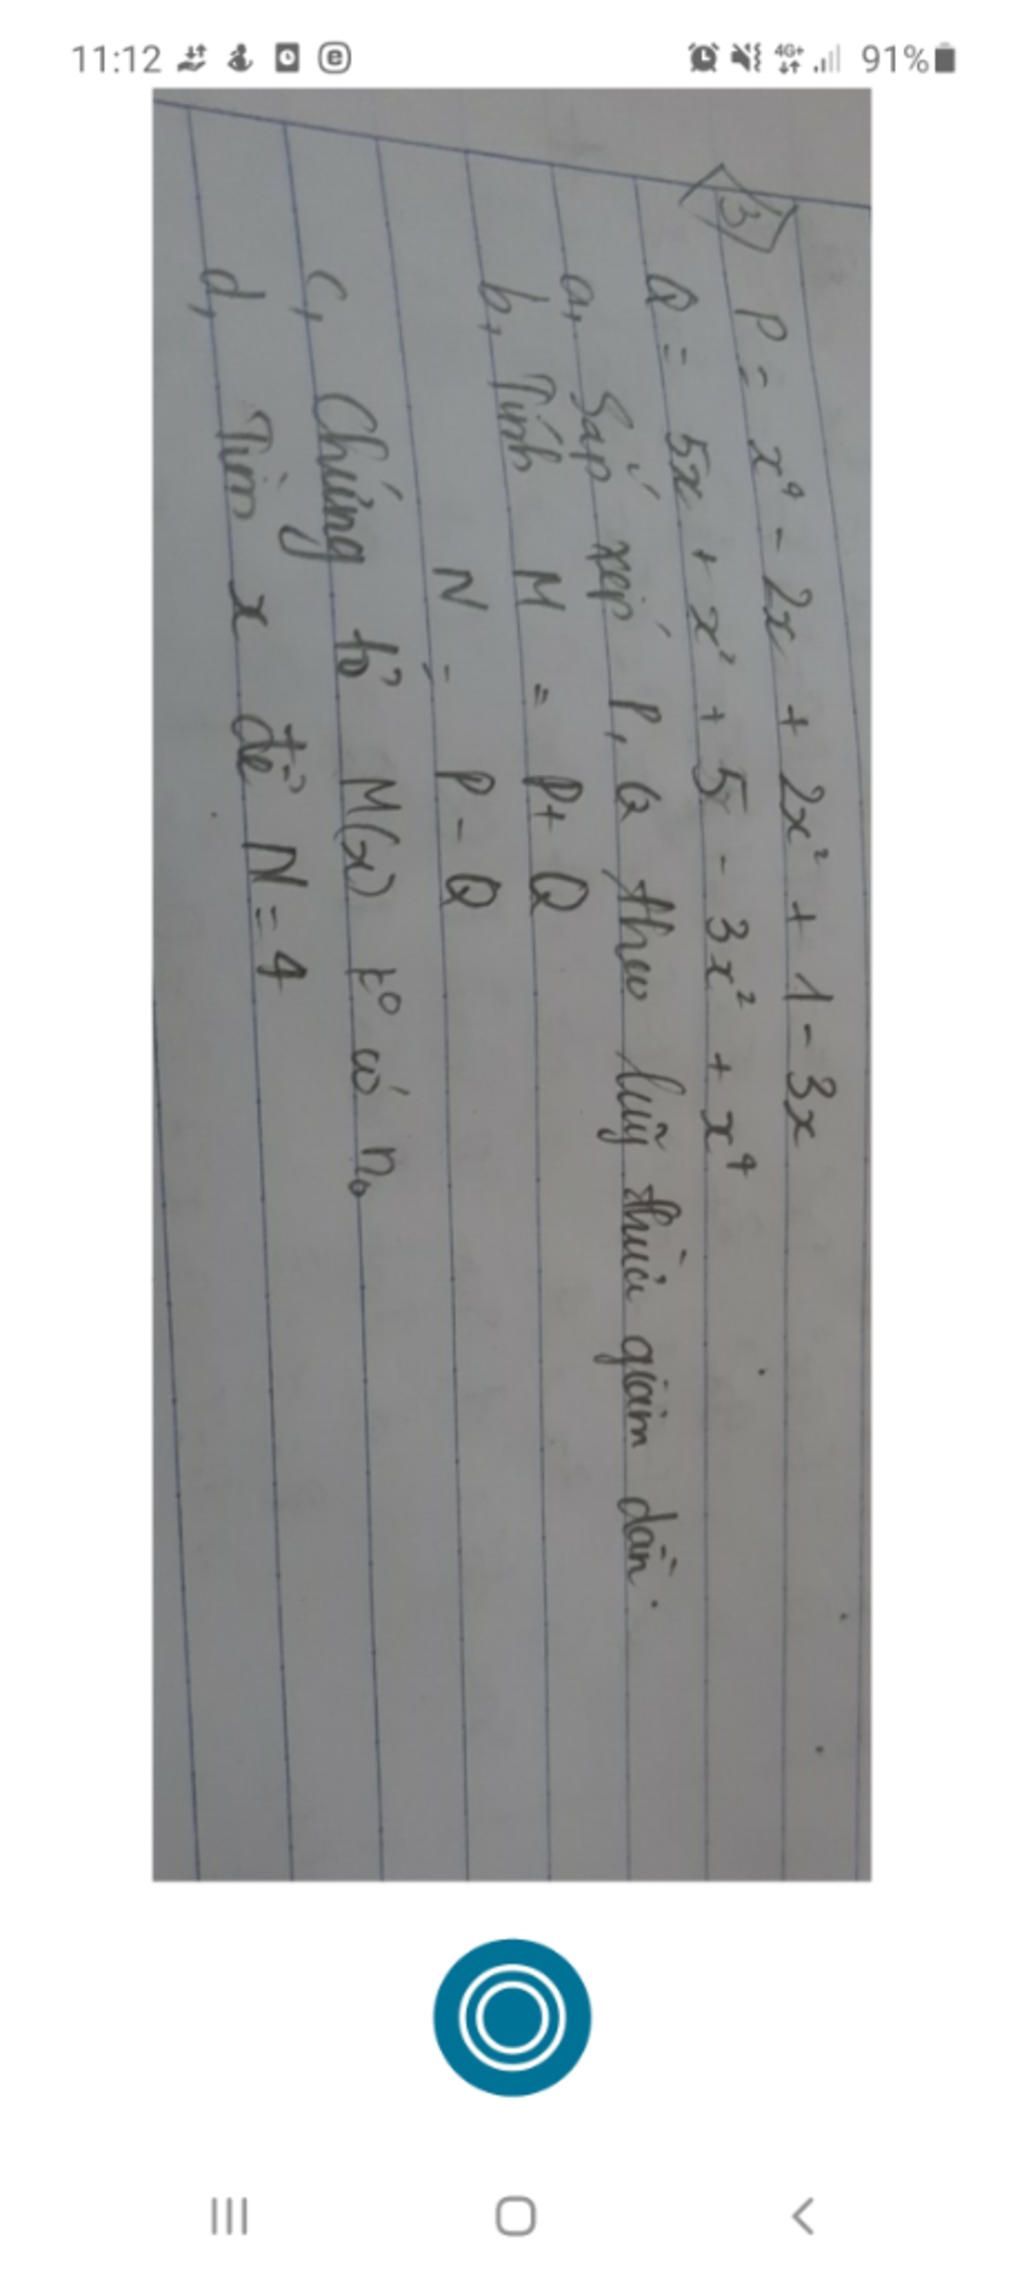 11:12
4G+
91%
3
P = x⁴ - 2x + 2x² + 1 - 3x
Q = 5x + x² + 5 - 3x² + x⁴
a, Sắp xếp P, Q theo luỹ thừa giảm dần.
b, Tính M = P + Q
N = P - Q
c, Chứng tỏ M(x) k° có n₀
d, Tìm x để N = 4